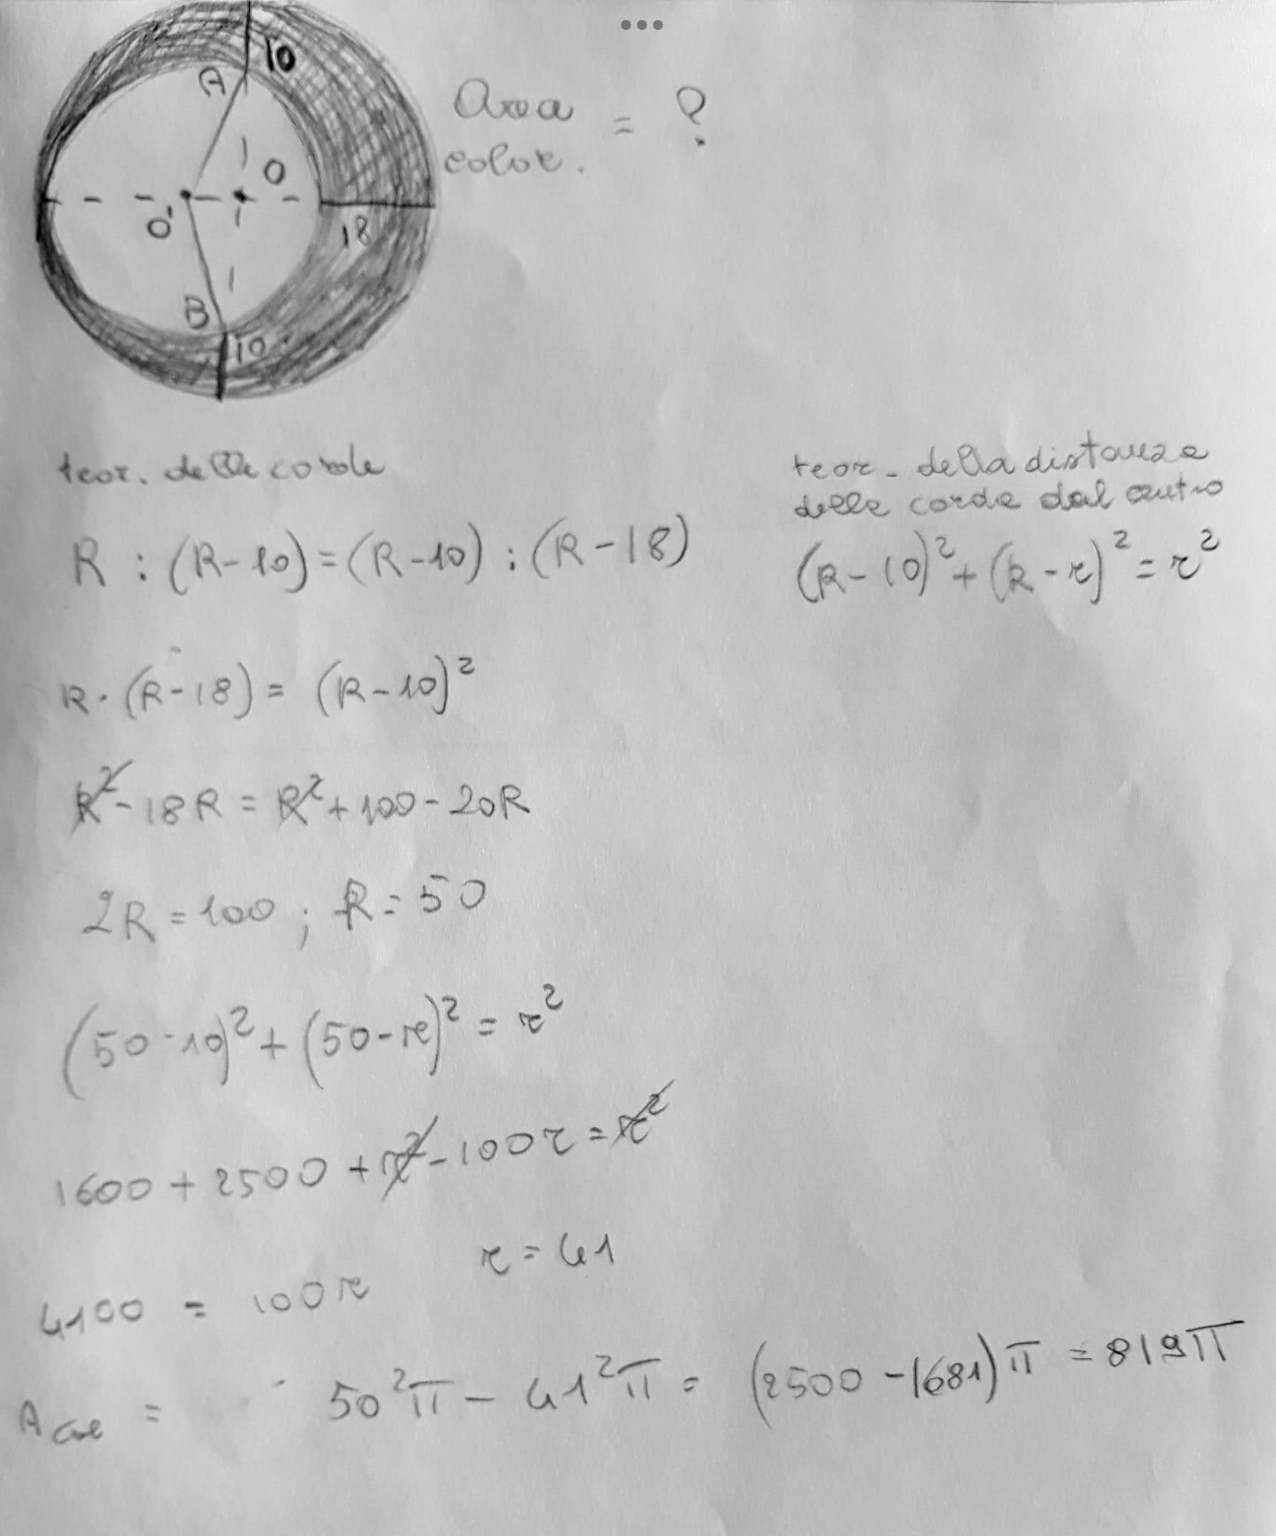 10
A
O
O'
18
B
10
Area = ?
color.
teor. delle corde
R : (R-10) = (R-10) : (R-18)
R · (R-18) = (R-10)²
R² - 18R = R² + 100 - 20R
2R = 100 ; R = 50
(50-10)² + (50-r)² = r²
1600 + 2500 + r² - 100r = r²
r = 41
4100 = 100r
A col = 50²π - 41²π = (2500 - 1681)π = 819π
teor. della distanza
delle corde dal centro
(R-10)² + (R-r)² = r²